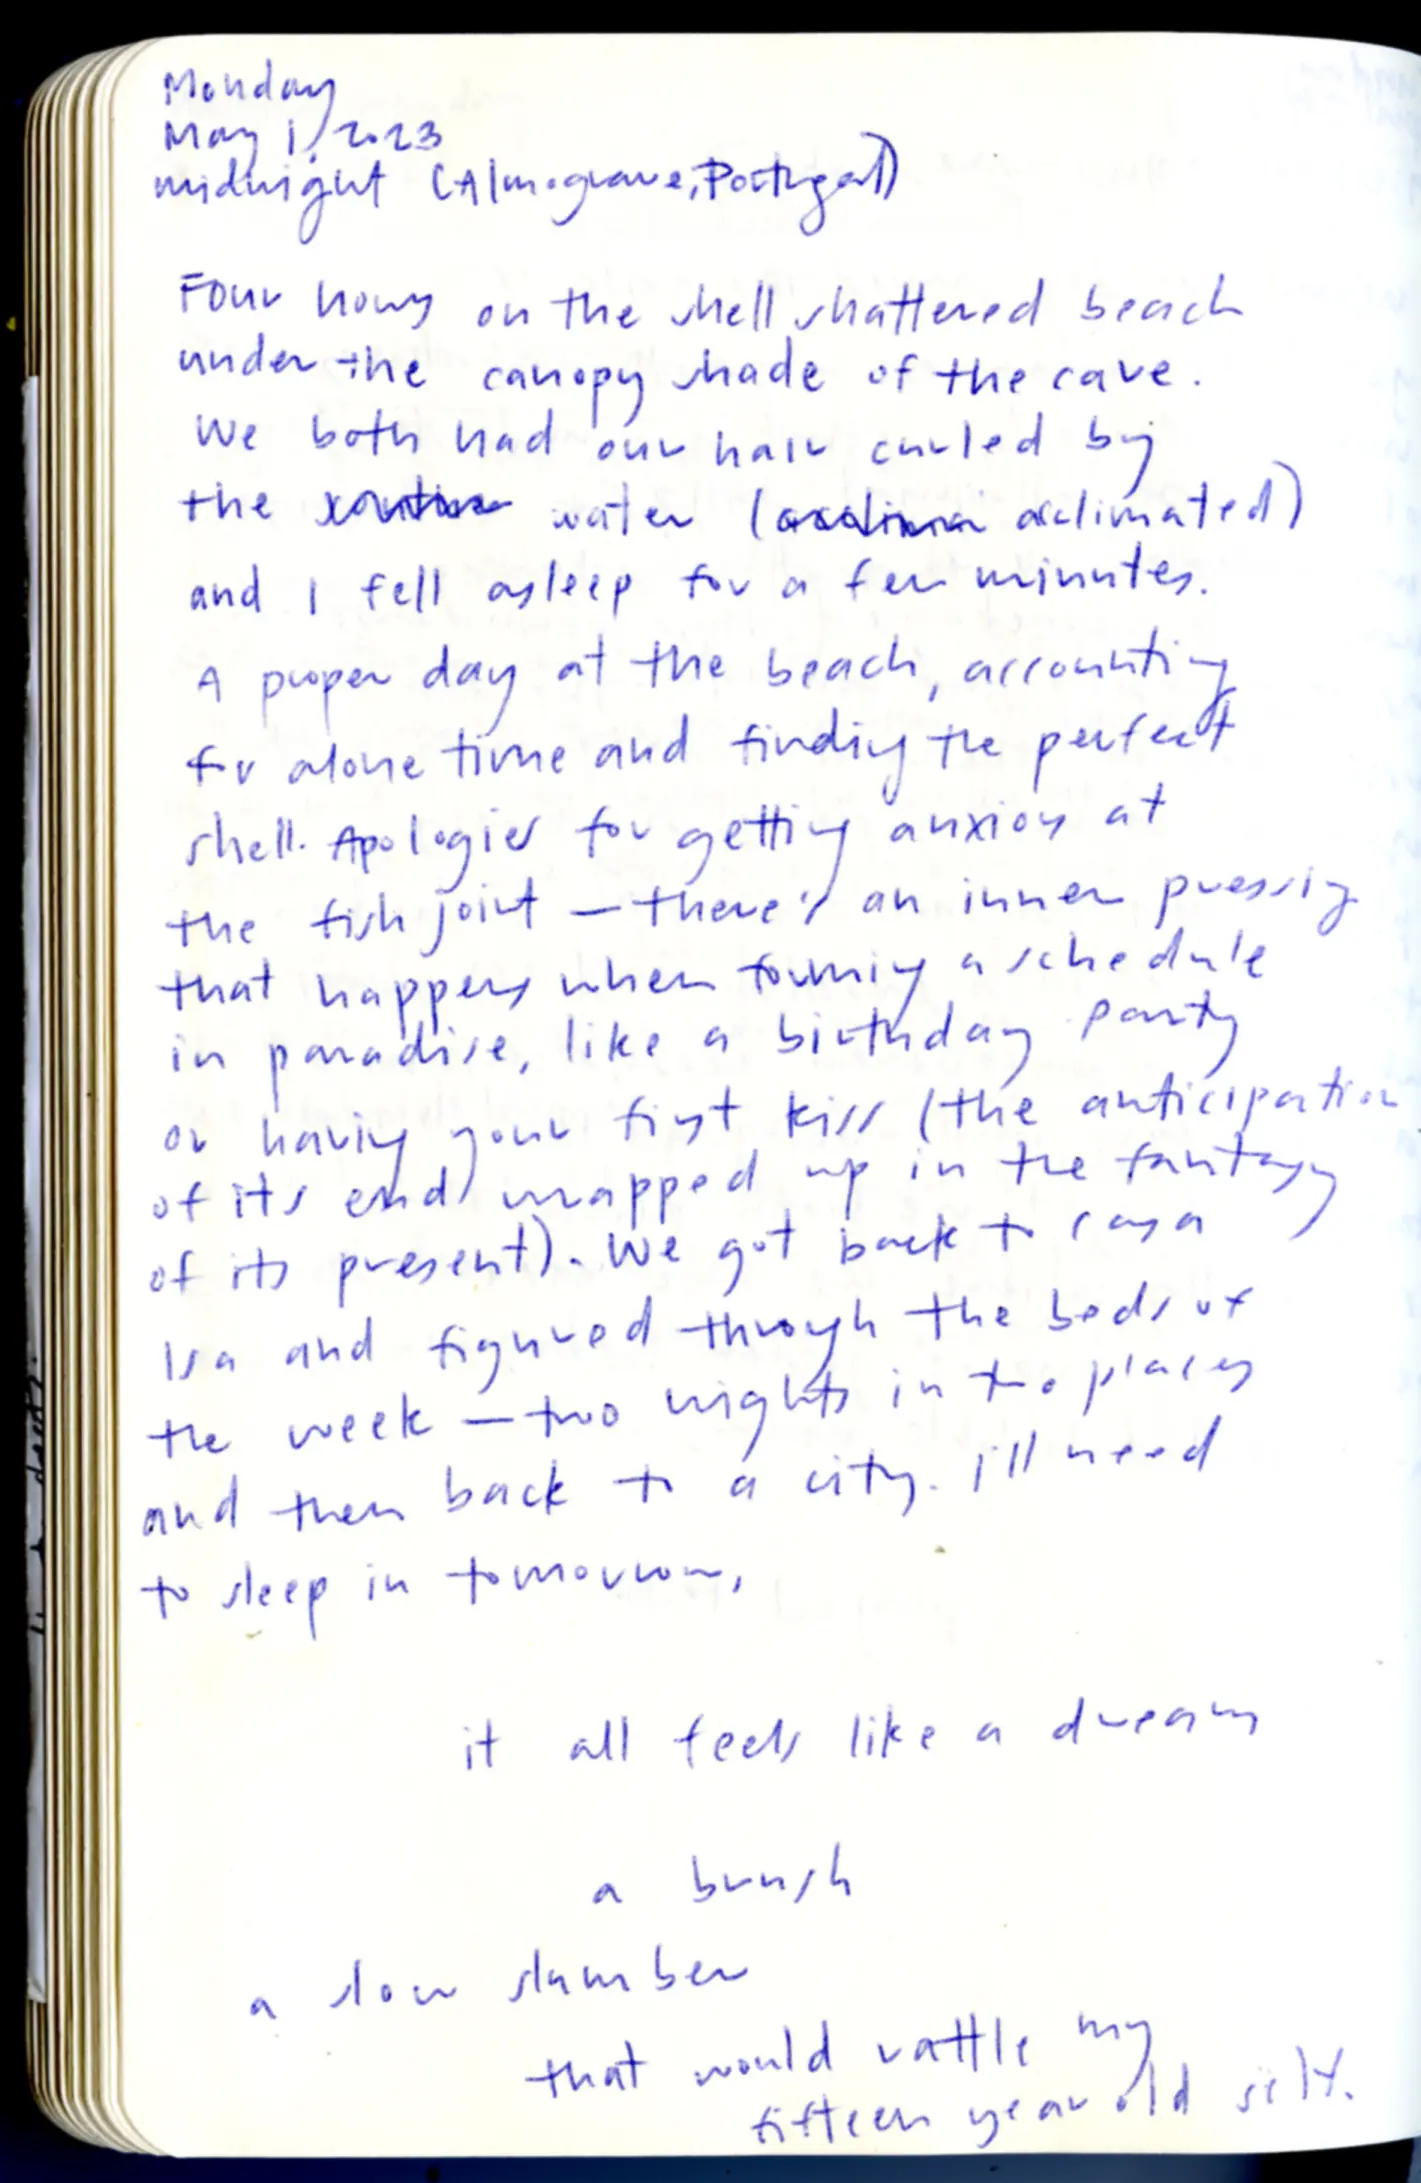 Monday
May 1, 2023
midnight (Almograve, Portugal)
Four hours on the shell shattered beach
under the canopy shade of the cave.
We both had our hair curled by
the water (acclimated)
and I fell asleep for a few minutes.
A proper day at the beach, accounting
for alone time and finding the perfect
shell. Apologies for getting anxious at
the fish joint — there's an inner pressing
that happens when forming a schedule
in paradise, like a birthday party
or having your first kiss (the anticipation
of its end wrapped up in the fantasy
of its present). We got back to casa
Isa and figured through the beds of
the week — two nights in two places
and then back to a city. I'll need
to sleep in tomorrow,
it all feels like a dream
a brush
a slow slumber
that would rattle my
fifteen year old self.